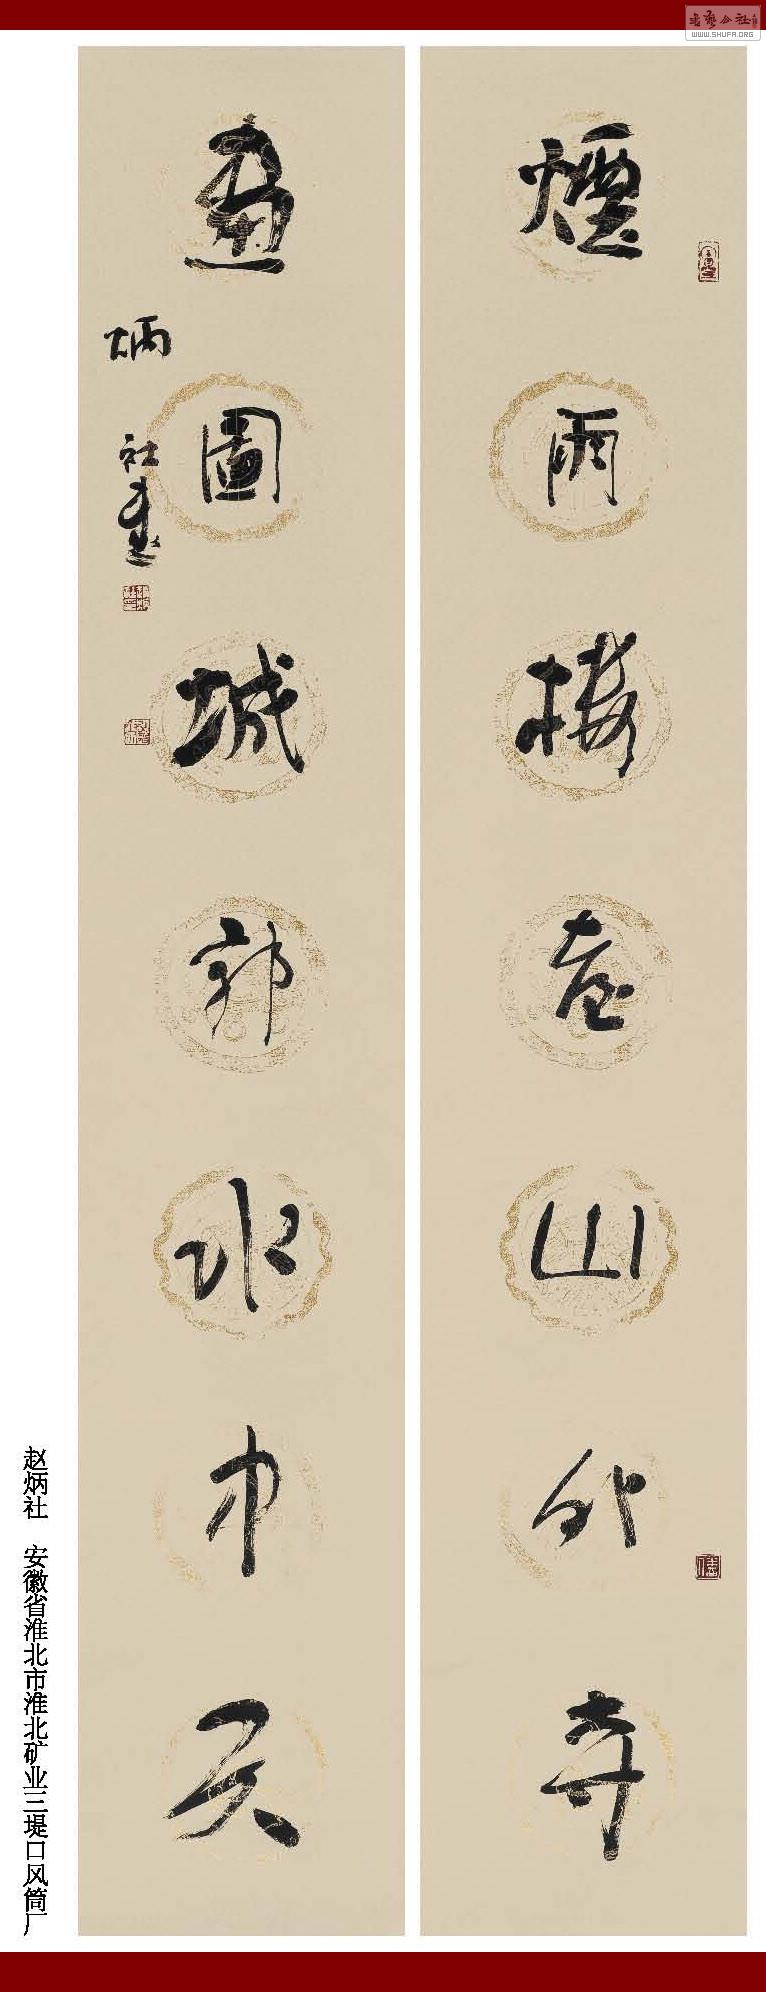 煙雨楼臺山外寺
畫圖城郭水中天
炳社書
赵炳社 安徽省淮北市淮北矿业三堤口风筒厂
书艺公社
WWW.SHUFA.ORG